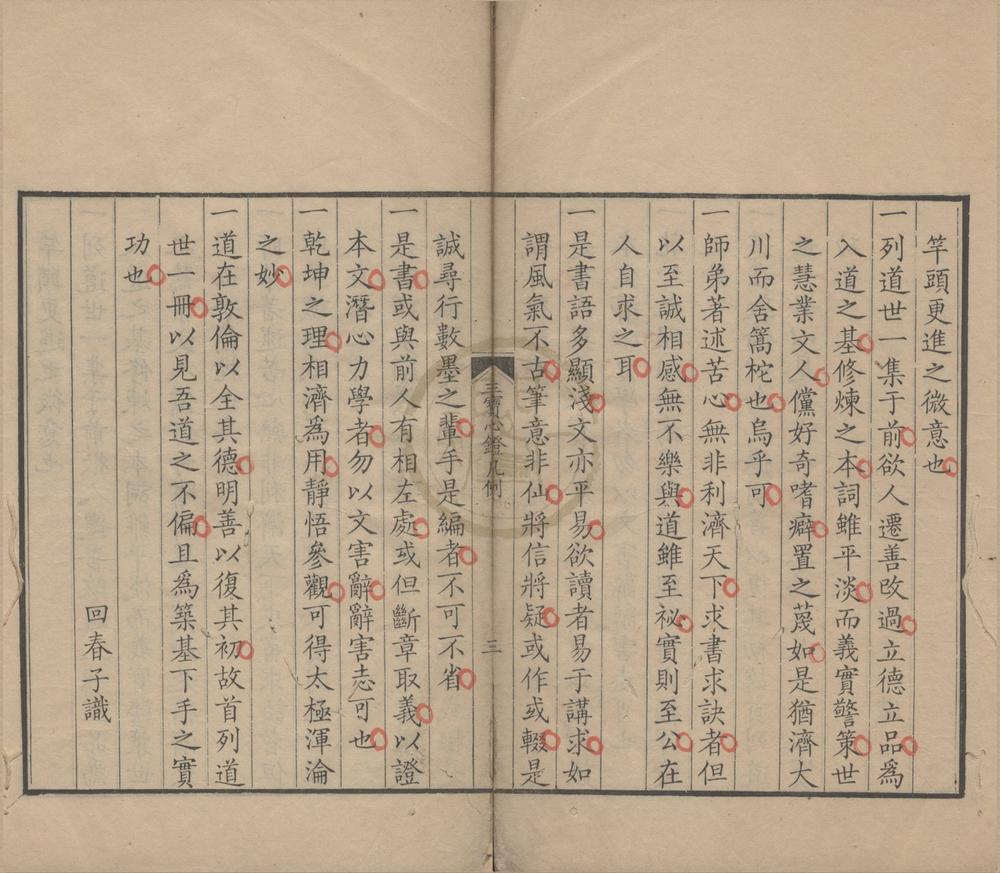 竿頭更進之微意也
一列道世一集于前欲人遷善改過立德立品爲
入道之基修煉之本詞雖平淡而義實警策世
之慧業文人儻好奇嗜癖置之蔑如是猶濟大
川而舍篙柁也烏乎可
一師弟著述苦心無非利濟天下求書求訣者但
以至誠相感無不樂與道雖至祕實則至公在
人自求之耳
一是書語多顯淺文亦平易欲讀者易于講求如
謂風氣不古筆意非仙將信將疑或作或輟是
三寶心鐙凡例
三
誠尋行數墨之輩手是編者不可不省
一是書或與前人有相左處或但斷章取義以證
本文潛心力學者勿以文害辭辭害志可也
一乾坤之理相濟爲用靜悟參觀可得太極渾淪
之妙
一道在敦倫以全其德明善以復其初故首列道
世一冊以見吾道之不偏且爲築基下手之實
功也
回春子識